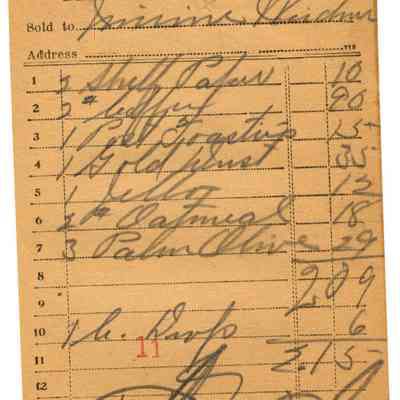 Sold to Minnie Weidner
Address
1 2 Shelf Paper 10
2 2# Coffey 90
3 1 Post Toasties 15
4 1 Gold Dust 35
5 1 Jello 12
6 2# Oatmeal 18
7 3 Palm Olive 29
8 2 09
9
10 1 C. Drops 6
11 11 2.15
12